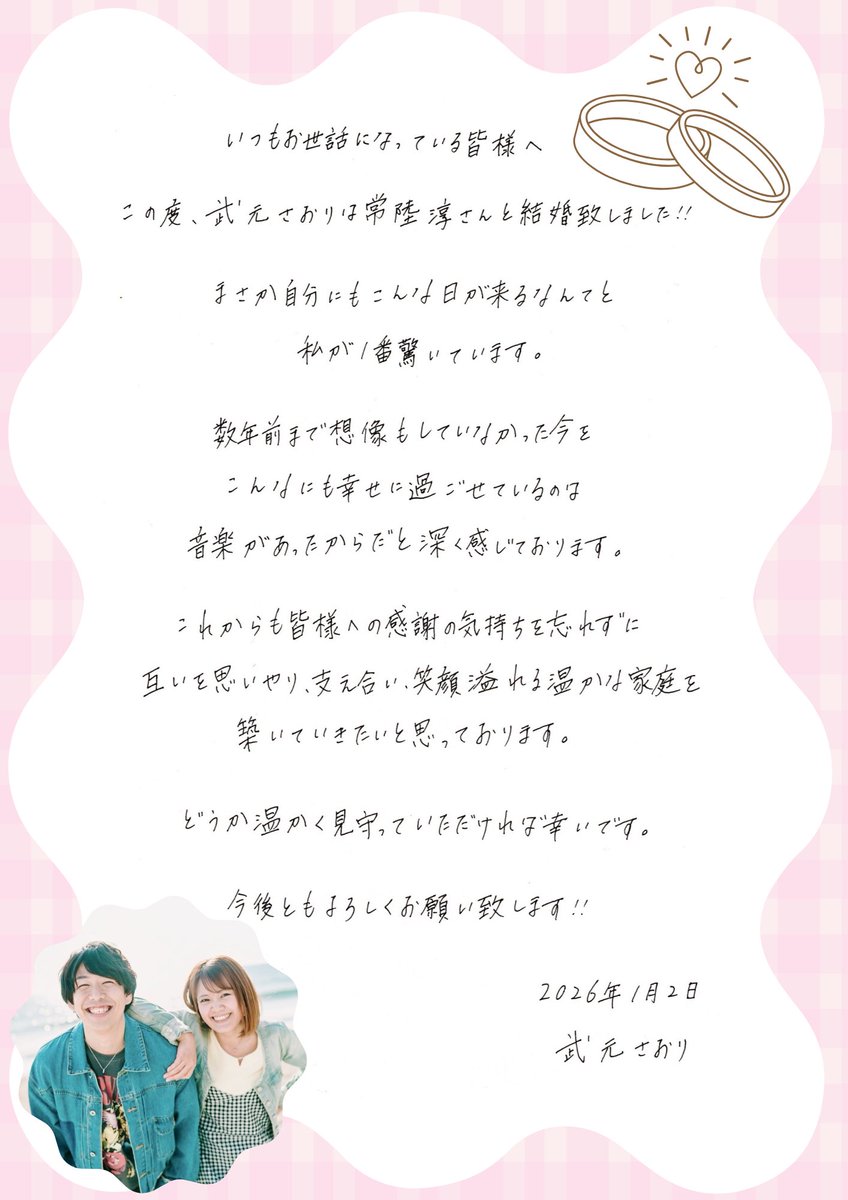 いつもお世話になっている皆様へ
この度、武元さおりは常陸淳さんと結婚致しました!!
まさか自分にもこんな日が来るなんてと
私が1番驚いています。
数年前まで想像もしていなかった今を
こんなにも幸せに過ごせているのは
音楽があったからだと深く感じております。
これからも皆様への感謝の気持ちを忘れずに
互いを思いやり、支え合い、笑顔溢れる温かな家庭を
築いていきたいと思っております。
どうか温かく見守っていただければ幸いです。
今後ともよろしくお願い致します!!
2026年1月2日
武元さおり